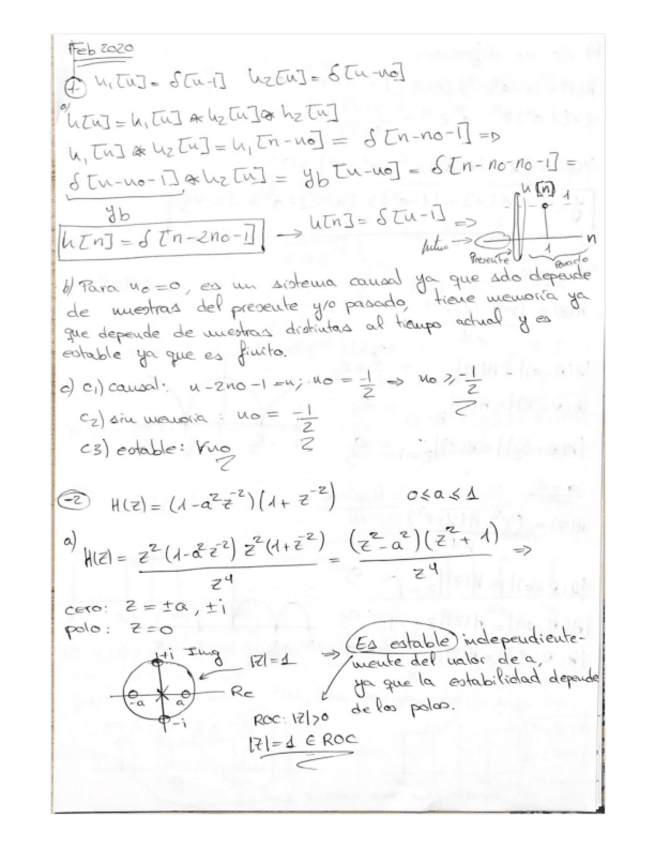 Feb 2020
1- h1[n] = δ[n-1] h2[n] = δ[n-no]
a) h[n] = h1[n] * h2[n] * h2[n]
h1[n] * h2[n] = h1[n-no] = δ[n-no-1] =>
δ[n-no-1] * h2[n] = yb[n-no] = δ[n-no-no-1] =
yb
h[n] = δ[n-2no-1] → h[n] = δ[n-1] =>
h[n]
1
n
futuro →
Presente
1
Pasado
b) Para no=0, es un sistema causal ya que sdo depende
de muestras del presente y/o pasado, tiene memoria ya
que depende de muestras distintas al tiempo actual y es
estable ya que es finito.
c) c1) causal: n-2no-1=n; no = -1/2 => no ≥ -1/2
c2) sin memoria: no = -1/2
c3) estable: ∀no
-2 H(z) = (1-a²z⁻²)(1+z⁻²) 0≤a≤1
a) H(z) = z²(1-a²z⁻²) z²(1+z⁻²) / z⁴ = (z²-a²)(z²+1) / z⁴ =>
cero: z = ±a, ±i
polo: z=0
+i Img
|z|=1
-a a Re
-i
ROC: |z|>0
|z|=1 ∈ ROC
=> Es estable independiente-
mente del valor de a,
ya que la estabilidad depende
de los polos.